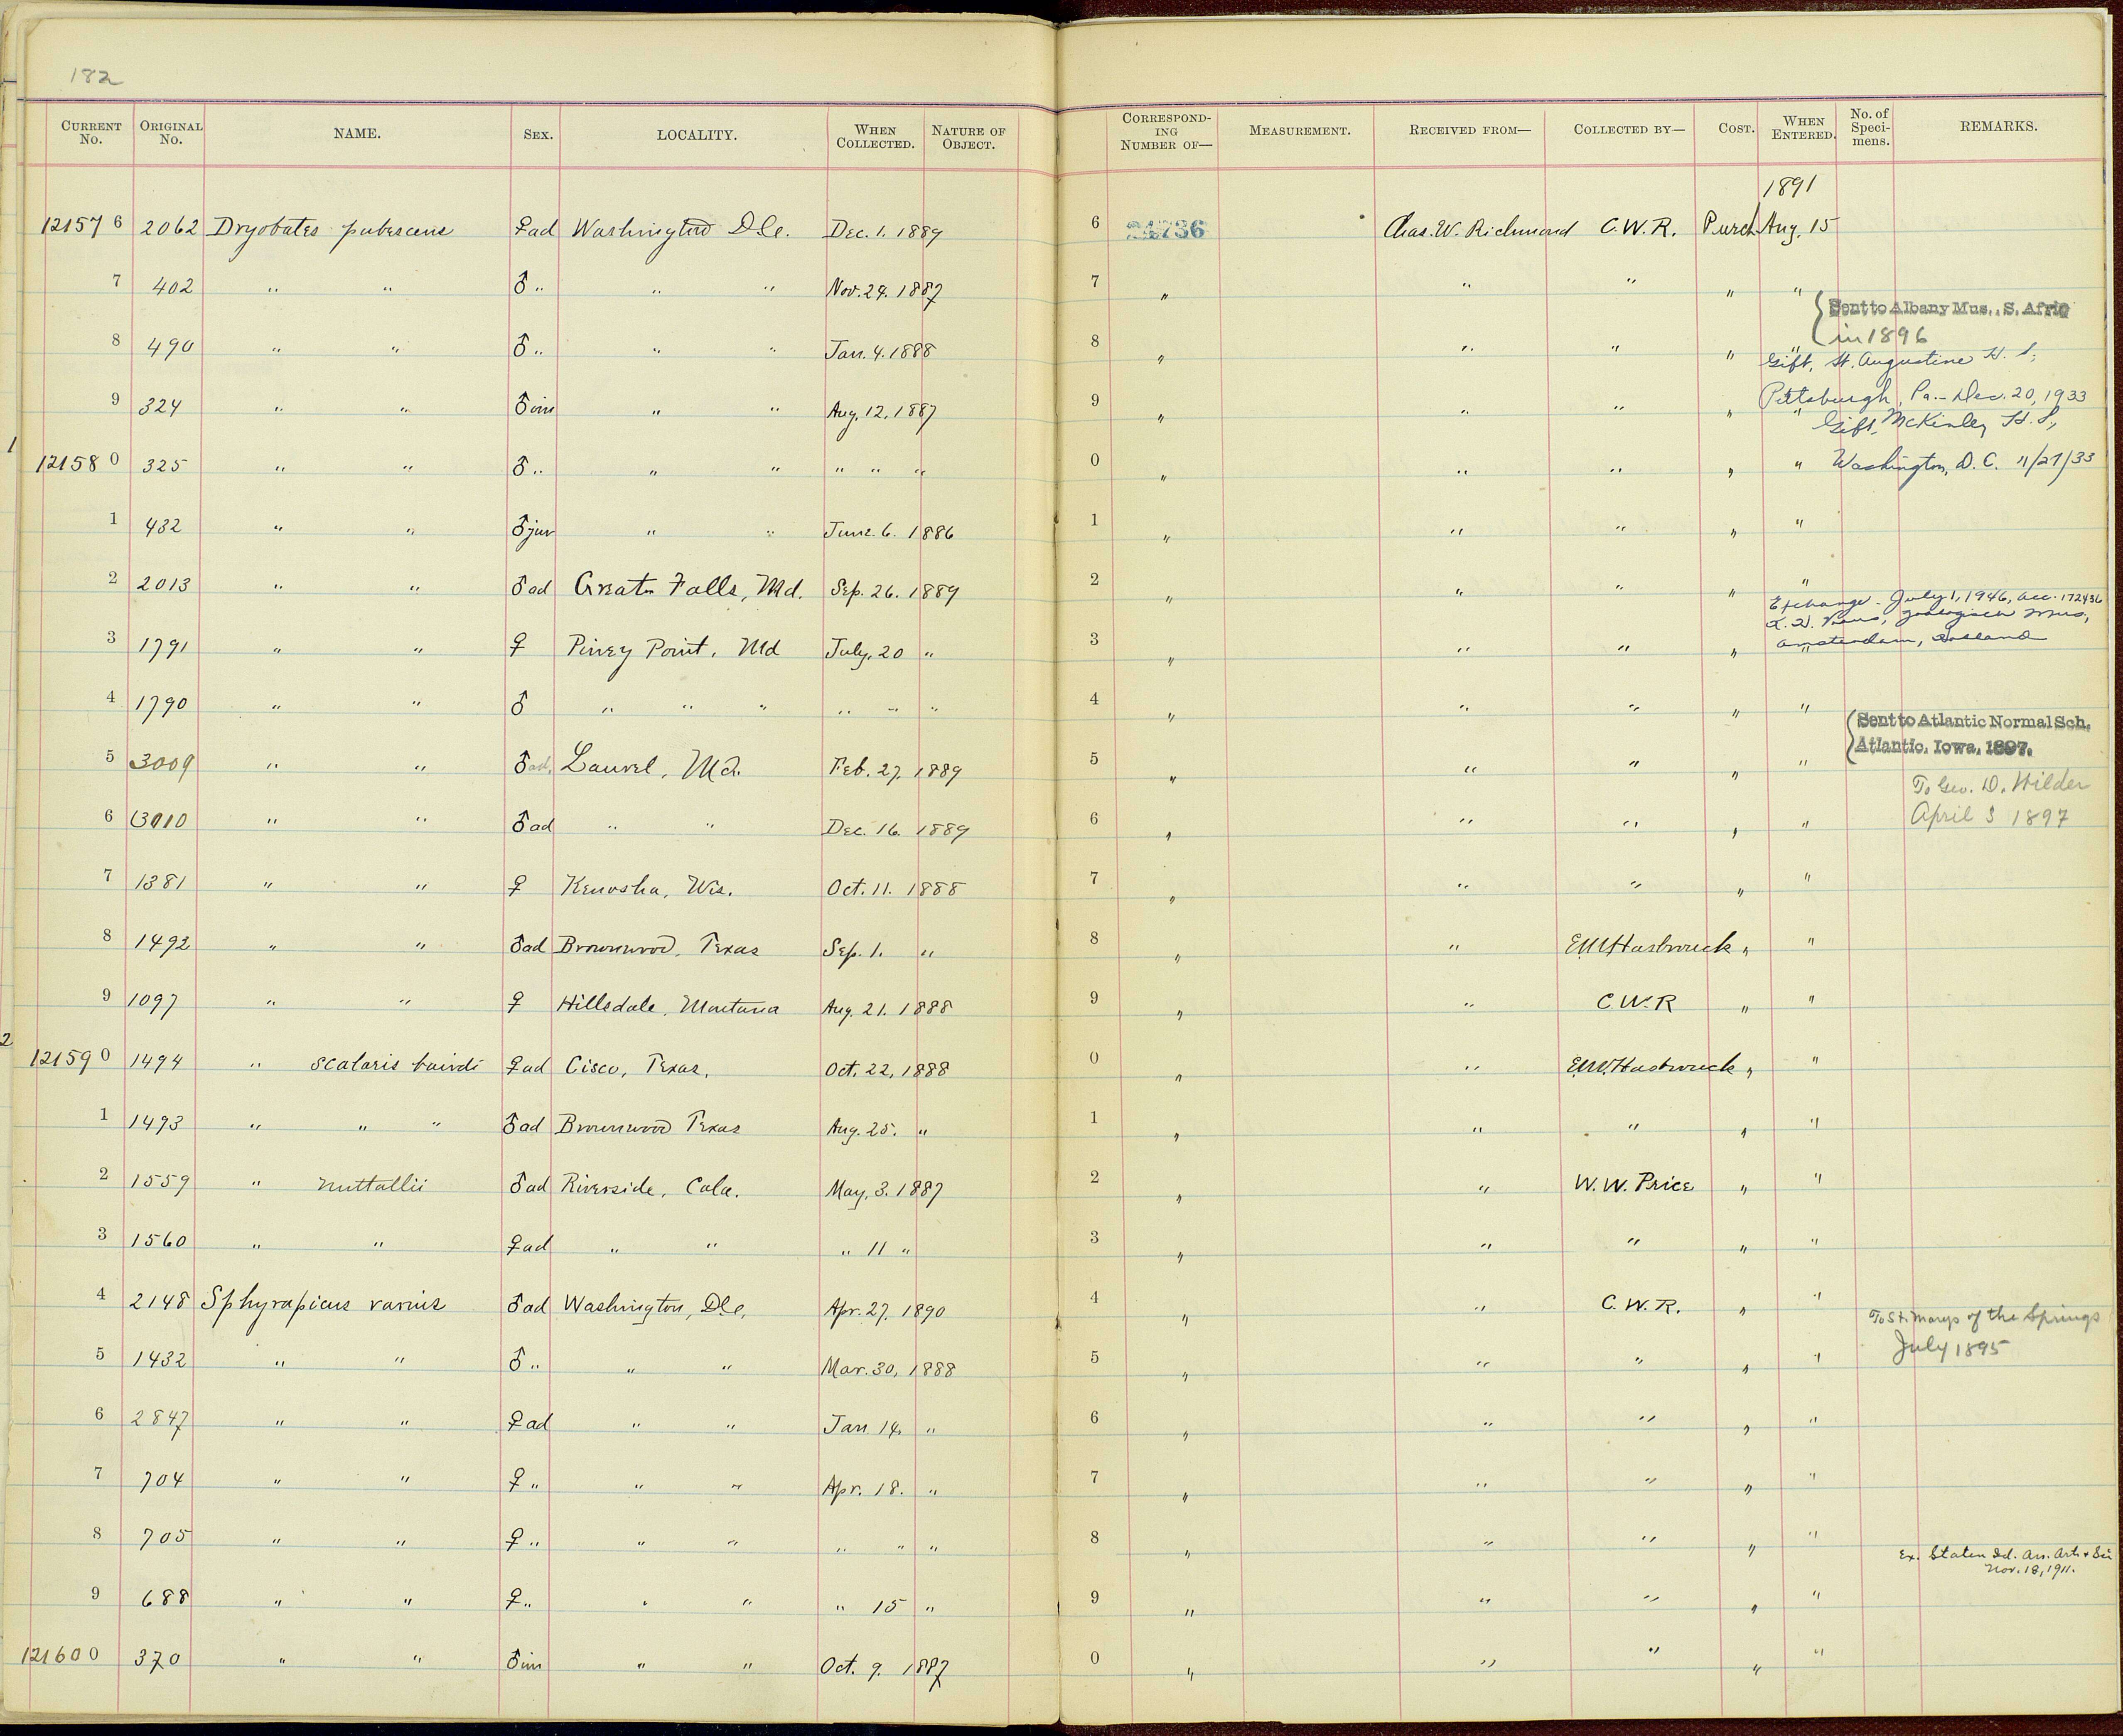 182
CURRENT No. ORIGINAL No. NAME. SEX. LOCALITY. WHEN COLLECTED. NATURE OF OBJECT. CORRESPONDING NUMBER OF— MEASUREMENT. RECEIVED FROM— COLLECTED BY— COST. WHEN ENTERED. No. of Specimens. REMARKS.
1891
12157 6 2062 Dryobates pubescens ♀ ad Washington D.C. Dec. 1. 1889 6 24736 Chas. W. Richmond C. W. R. Purch. Aug. 15
7 402 " " ♂ " " " Nov. 24. 1887 7 " " " " "
Sent to Albany Mus., S. Afric
in 1896
8 490 " " ♂ " " " Jan. 4. 1888 8 " " " " "
Gift, St. Augustine H. S.,
Pittsburgh, Pa. - Dec. 20, 1933
9 324 " " ♂ im " " Aug. 12, 1887 9 " " " " "
Gift, McKinley H. S.,
1 12158 0 325 " " ♂ " " " " " " 0 " " " " " Washington, D. C. 11/27/33
1 432 " " ♂ juv " " June. 6. 1886 1 " " " " "
2 2013 " " ♂ ad Great Falls, Md. Sep. 26. 1889 2 " " " " "
Exchange - July 1, 1946, acc. 172436
Zoologisch Mus,
Amsterdam, Holland
3 1791 " " ♀ Piney Point, Md July, 20 " 3 " " " " "
4 1790 " " ♂ " " " " " " 4 " " " " "
Sent to Atlantic Normal Sch.
Atlantic, Iowa, 1897.
5 3009 " " ♂ ad, Laurel, Md. Feb. 27. 1889 5 " " " " "
To Geo. D. Wilder
April 3 1897
6 3010 " " ♂ ad " " Dec. 16. 1889 6 " " " " "
7 1381 " " ♀ Kenosha, Wis. Oct. 11. 1888 7 " " " " "
8 1492 " " ♂ ad Brownwood, Texas Sep. 1. " 8 " " E.M. Hasbrouck " "
9 1097 " " ♀ Hillsdale, Montana Aug. 21. 1888 9 " " C. W. R " "
2 12159 0 1494 " scalaris bairdi ♀ ad Cisco, Texas. Oct. 22, 1888 0 " " E.M. Hasbrouck " "
1 1493 " " " ♂ ad Brownwood Texas Aug. 25. " 1 " " " " "
2 1559 " nuttallii ♂ ad Riverside, Cala. May, 3. 1887 2 " " W. W. Price " "
3 1560 " " ♀ ad " " " 11 " 3 " " " " "
4 2148 Sphyrapicus varius ♂ ad Washington, D.C. Apr. 27, 1890 4 " " C. W. R. " "
To St. Marys of the Springs
July 1895
5 1432 " " ♂ " " " Mar. 30, 1888 5 " " " " "
6 2847 " " ♀ ad " " Jan. 14. " 6 " " " " "
7 704 " " ♀ " " " Apr. 18. " 7 " " " " "
8 705 " " ♀ " " " " " " 8 " " " " "
Ex. Staten Id. Ass. Arts & Sci
Nov. 18, 1911.
9 688 " " ♀ " " " " 15 " 9 " " " " "
12160 0 370 " " ♂ im " " Oct. 9. 1887 0 " " " " "